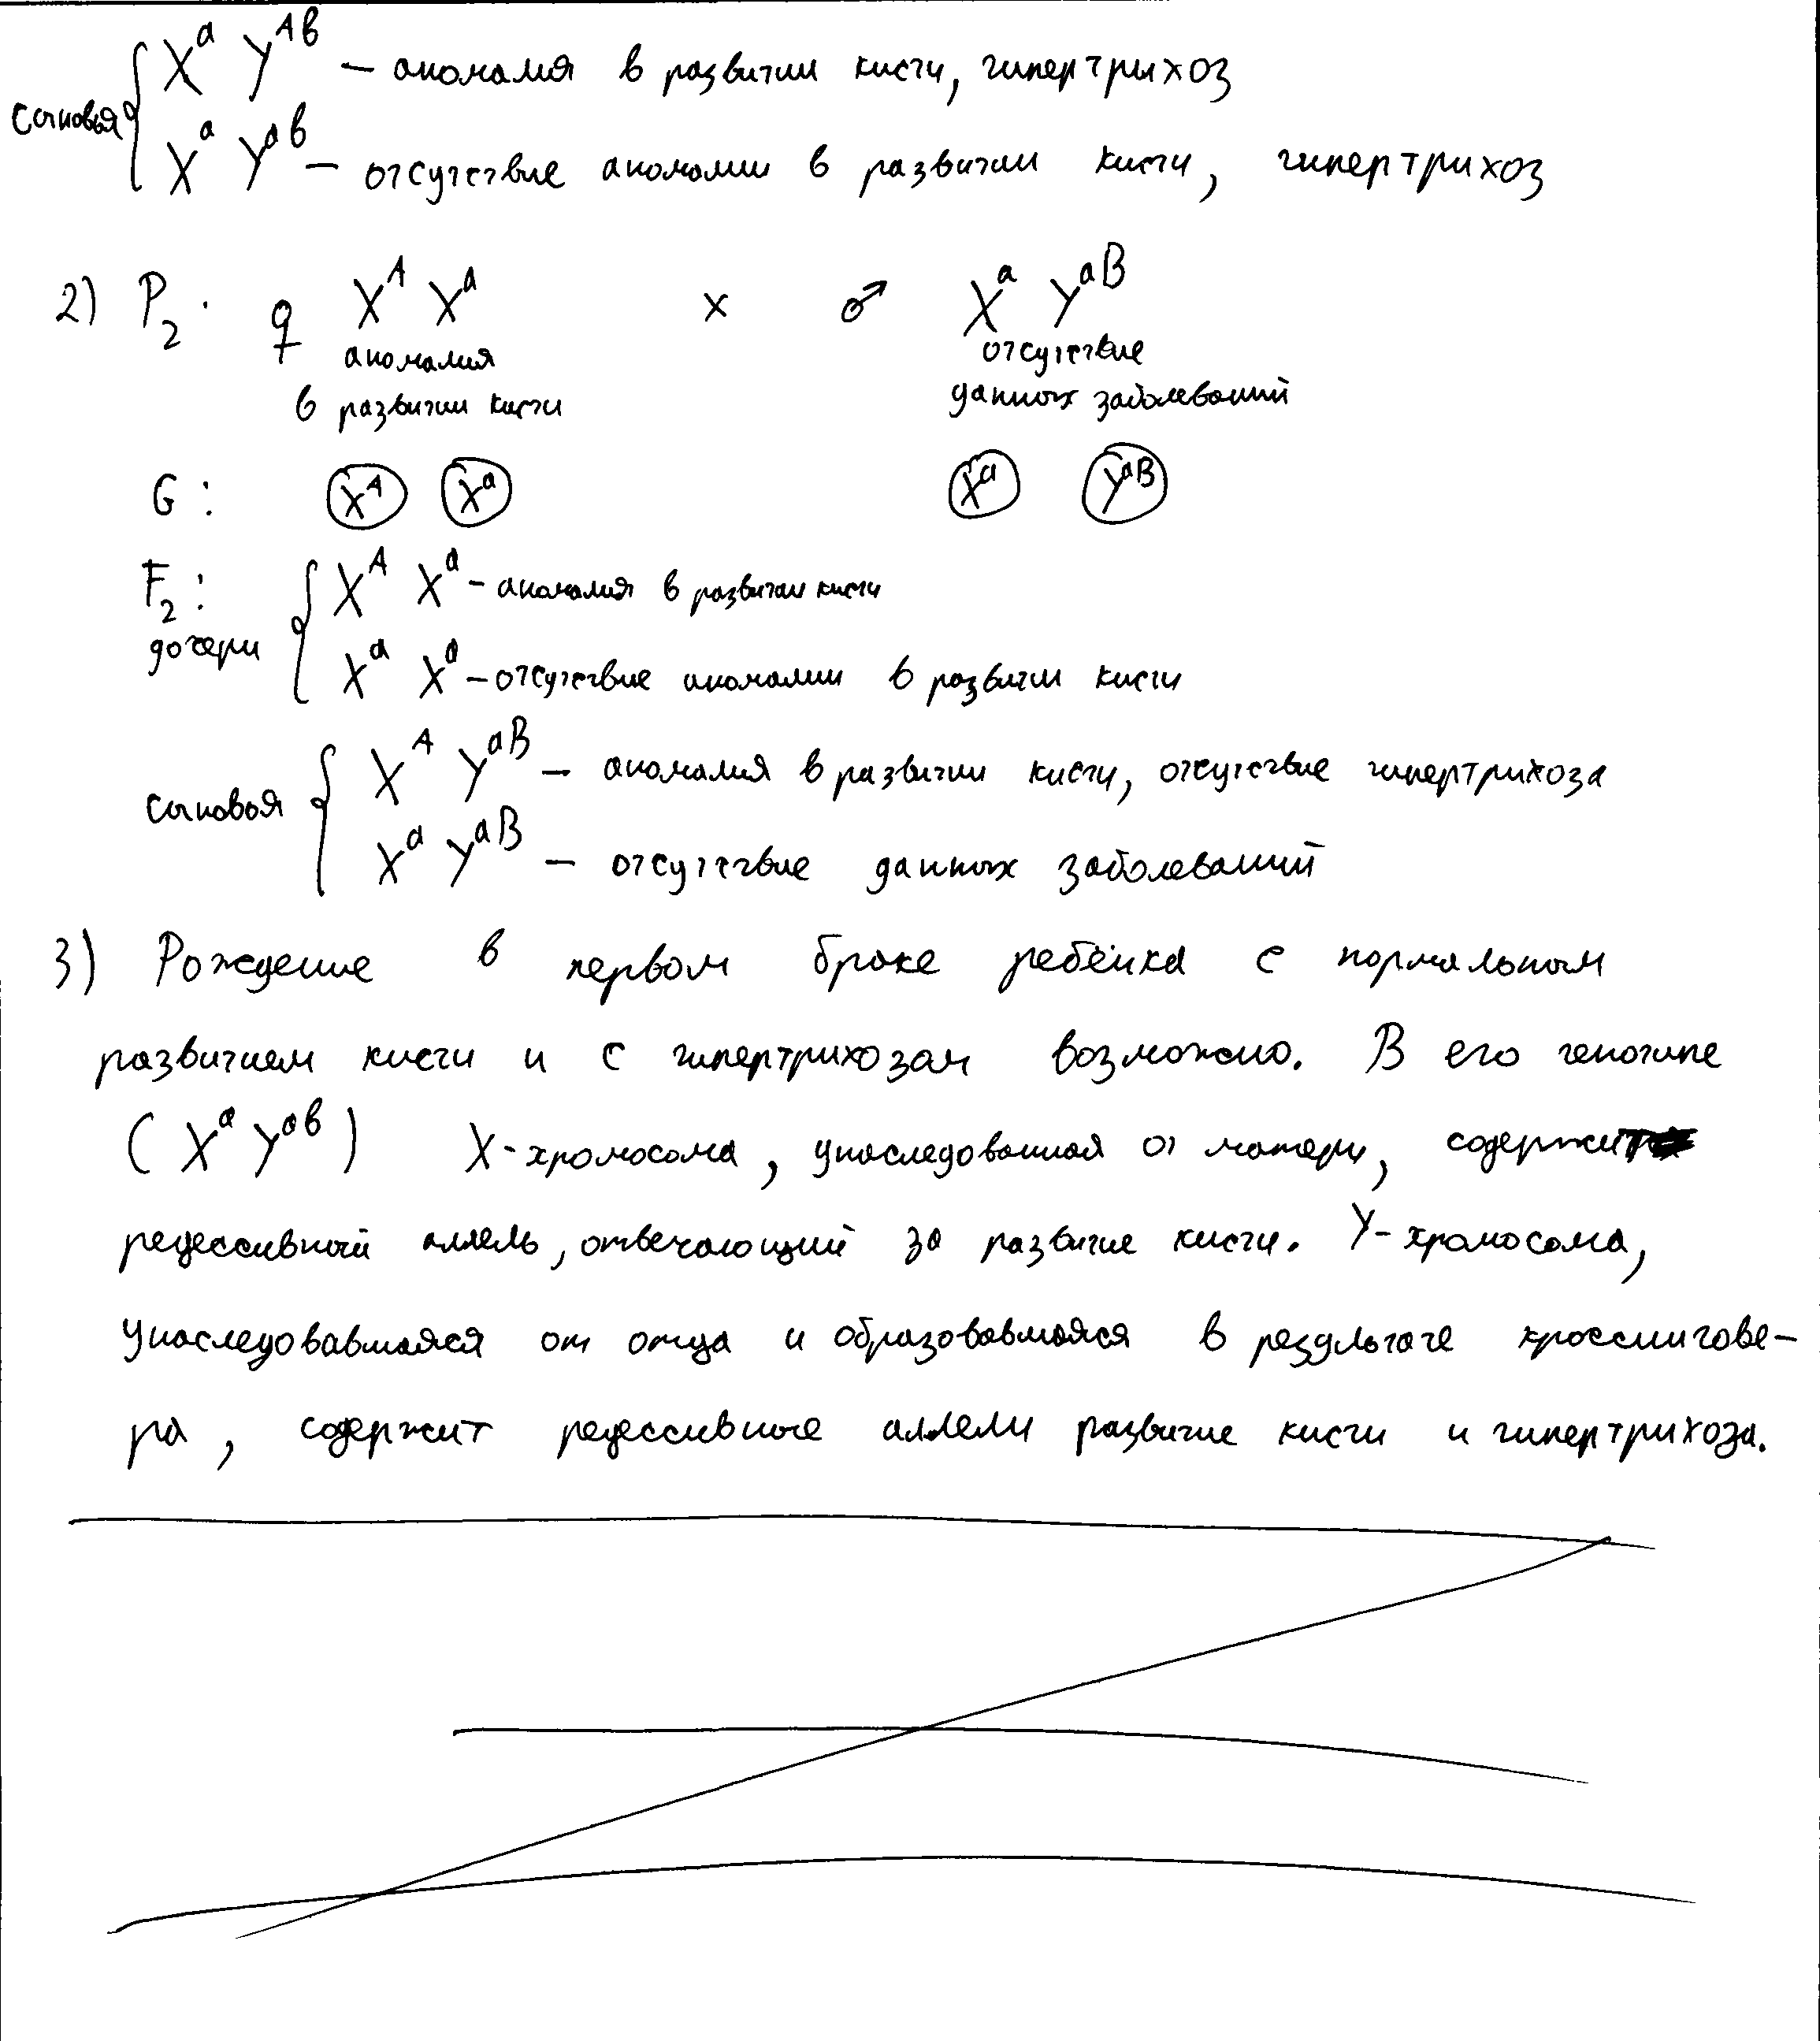 сыновья { Xᵃ Yᴬᵇ — аномалия в развитии кисти, гипертрихоз
Xᵃ Yᵃᵇ — отсутствие аномалии в развитии кисти, гипертрихоз
2) P₂: ♀ Xᴬ Xᵃ x ♂ Xᵃ Yᵃᴮ
аномалия отсутствие
в развитии кисти данных заболеваний
G: Xᴬ Xᵃ Xᵃ Yᵃᴮ
F₂: { Xᴬ Xᵃ - аномалия в развитии кисти
дочери Xᵃ Xᵃ - отсутствие аномалии в развитии кисти
сыновья { Xᴬ Yᵃᴮ — аномалия в развитии кисти, отсутствие гипертрихоза
Xᵃ Yᵃᴮ — отсутствие данных заболеваний
3) Рождение в первом браке ребёнка с нормальным
развитием кисти и с гипертрихозам возможно. В его генотипе
(Xᵃ Yᵃᵇ) X-хромосома, унаследованная от матери, содержит
рецессивный аллель, отвечающий за развитие кисти. Y-хромосома,
унаследовавшаяся от отца и образовавшаяся в результате кроссингове-
ра, содержит рецессивные аллели развитие кисти и гипертрихоза.